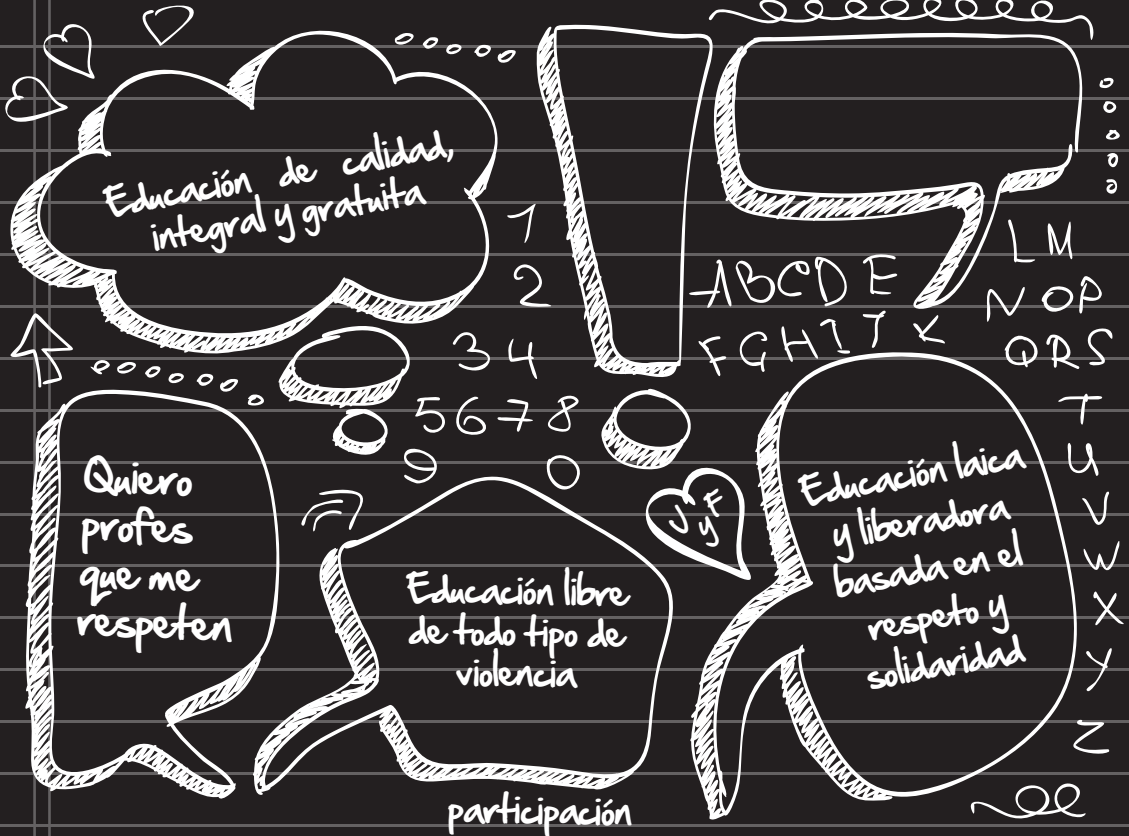 Educación de calidad,
integral y gratuita
1
2
3 4
5 6 7 8
9 0
A B C D E
F G H I J K
L M
N O P
Q R S
T
U
V
W
X
Y
Z
Quiero
profes
que me
respeten
Educación libre
de todo tipo de
violencia
J
y F
Educación laica
y liberadora
basada en el
respeto y
solidaridad
participación